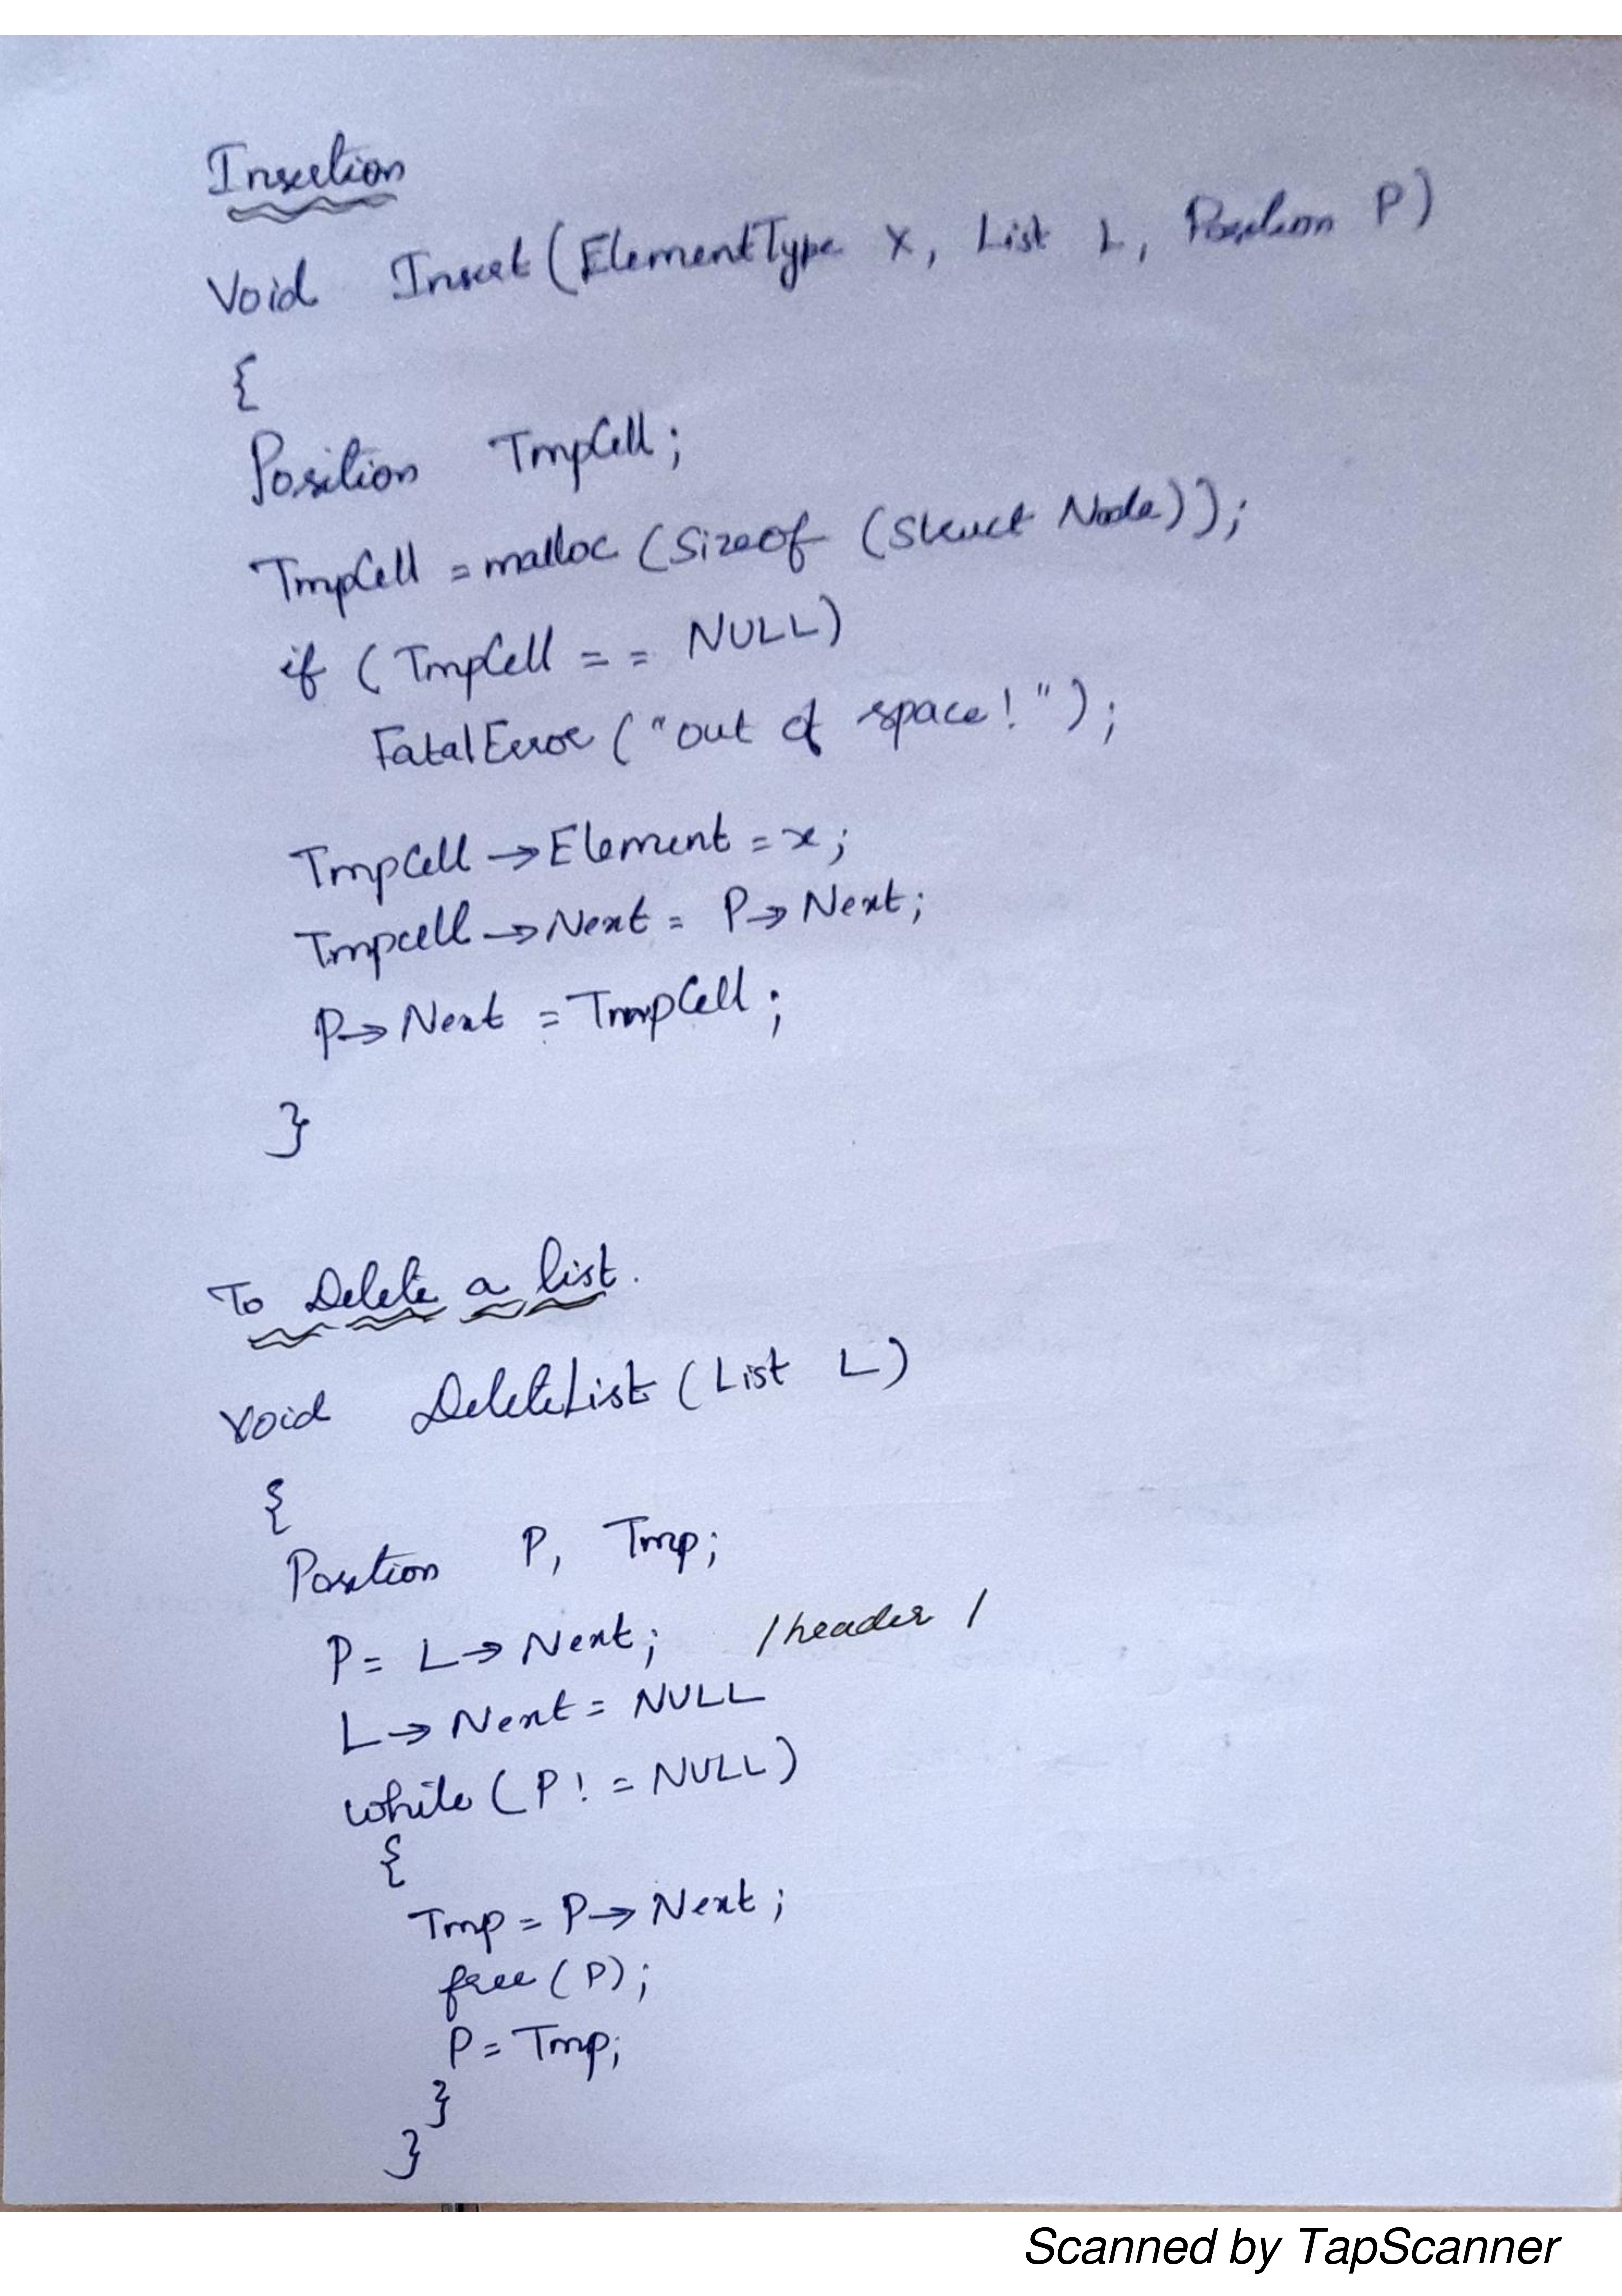 Insertion
Void Insert (ElementType X, List L, Position P)
{
Position TmpCell;
TmpCell = malloc (Sizeof (Struct Node));
if (TmpCell == NULL)
FatalError ("out of space!");
TmpCell → Element = x;
Tmpcell → Next = P → Next;
P → Next = TmpCell;
}
To Delete a list.
Void DeleteList (List L)
{
Position P, Tmp;
P = L → Next; /header /
L → Next = NULL
while (P != NULL)
{
Tmp = P → Next;
free (P);
P = Tmp;
}
}
Scanned by TapScanner